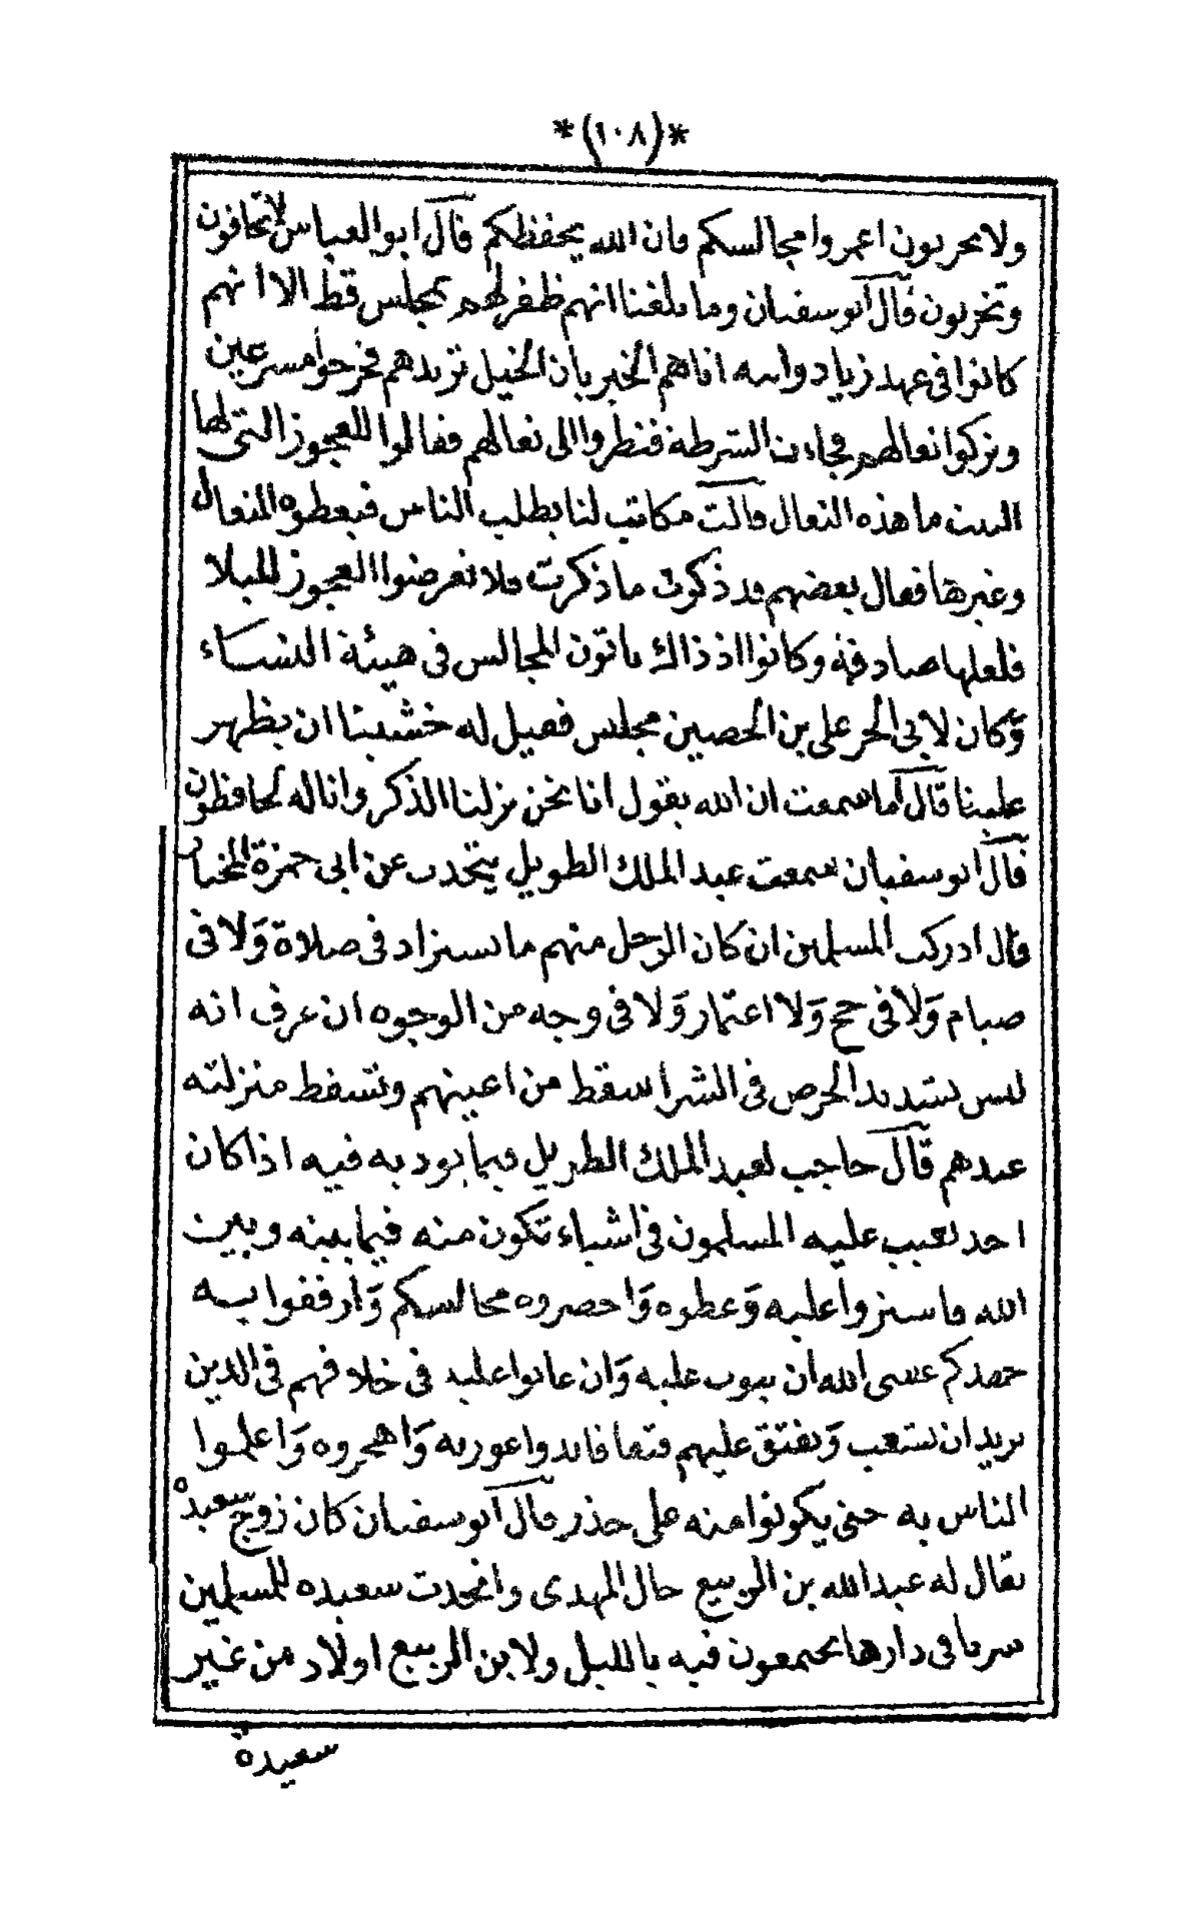 *(١٠٨)*
ولا تحربون اعمروا مجالسكم فان الله يحفظكم قال ابو العباس لا تخافون
وتخربون قال ابو سفيان وما بلغنا انهم ظفر لهم بمجلس قط الا انهم
كانوا في عهد زياد وابنه اتاهم الخبر بان الخيل تريدهم فخرجوا مسرعين
وتركوا نعالهم فجاءت الشرطة فنظروا الى نعالهم فقالوا للعجوز التي لها
البيت ما هذه النعال قالت مكاتب لنا يطلب الناس فيعطوه النعال
وغيرها فقال بعضهم قد ذكرت ما ذكرت فلا تعرضوا العجوز للبلا
فلعلها صادقة وكانوا اذ ذاك ياتون المجالس في هيئة النساء
وكان لابي الحر علي بن الحصين مجلس فقيل له خشينا ان يظهر
علينا قال أما سمعت ان الله يقول انا نحن نزلنا الذكر وانا له لحافظون
قال ابو سفيان سمعت عبد الملك الطويل يتحدث عن ابى حمزة المختار
قال ادركت المسلمين ان كان الرجل منهم ما يستزاد في صلاة وَلا في
صيام وَلا في حج وَلا اعتمار وَلا في وجه من الوجوه ان عرف انه
ليس بشديد الحرص في الشرا سقط من اعينهم وتسقط منزلته
عندهم قال حاجب لعبد الملك الطويل فيما يود به فيه اذا كان
احد تعيب عليه المسلمون في اشياء تكون منه فيما بينه وبين
الله فاستنزوا عليه وَعطوه وَاحضروه مجالسكم وَارفقوا به
جهدكم عسى الله ان يتوب عليه وَان عابوا عليه في خلافهم في الدين
يريد ان يشعب وَيفتق عليهم فتقا فابدوا عورته وَاهجروه وَاعلموا
الناس به حتى يكونوا منه على حذر قال ابو سفيان كان زوج سعيدة
يقال له عبد الله بن الربيع خال المهدى واتخذت سعيده للمسلمين
سربا في دارها يجتمعون فيه بالليل ولابن الربيع اولاد من غير
سعيدة